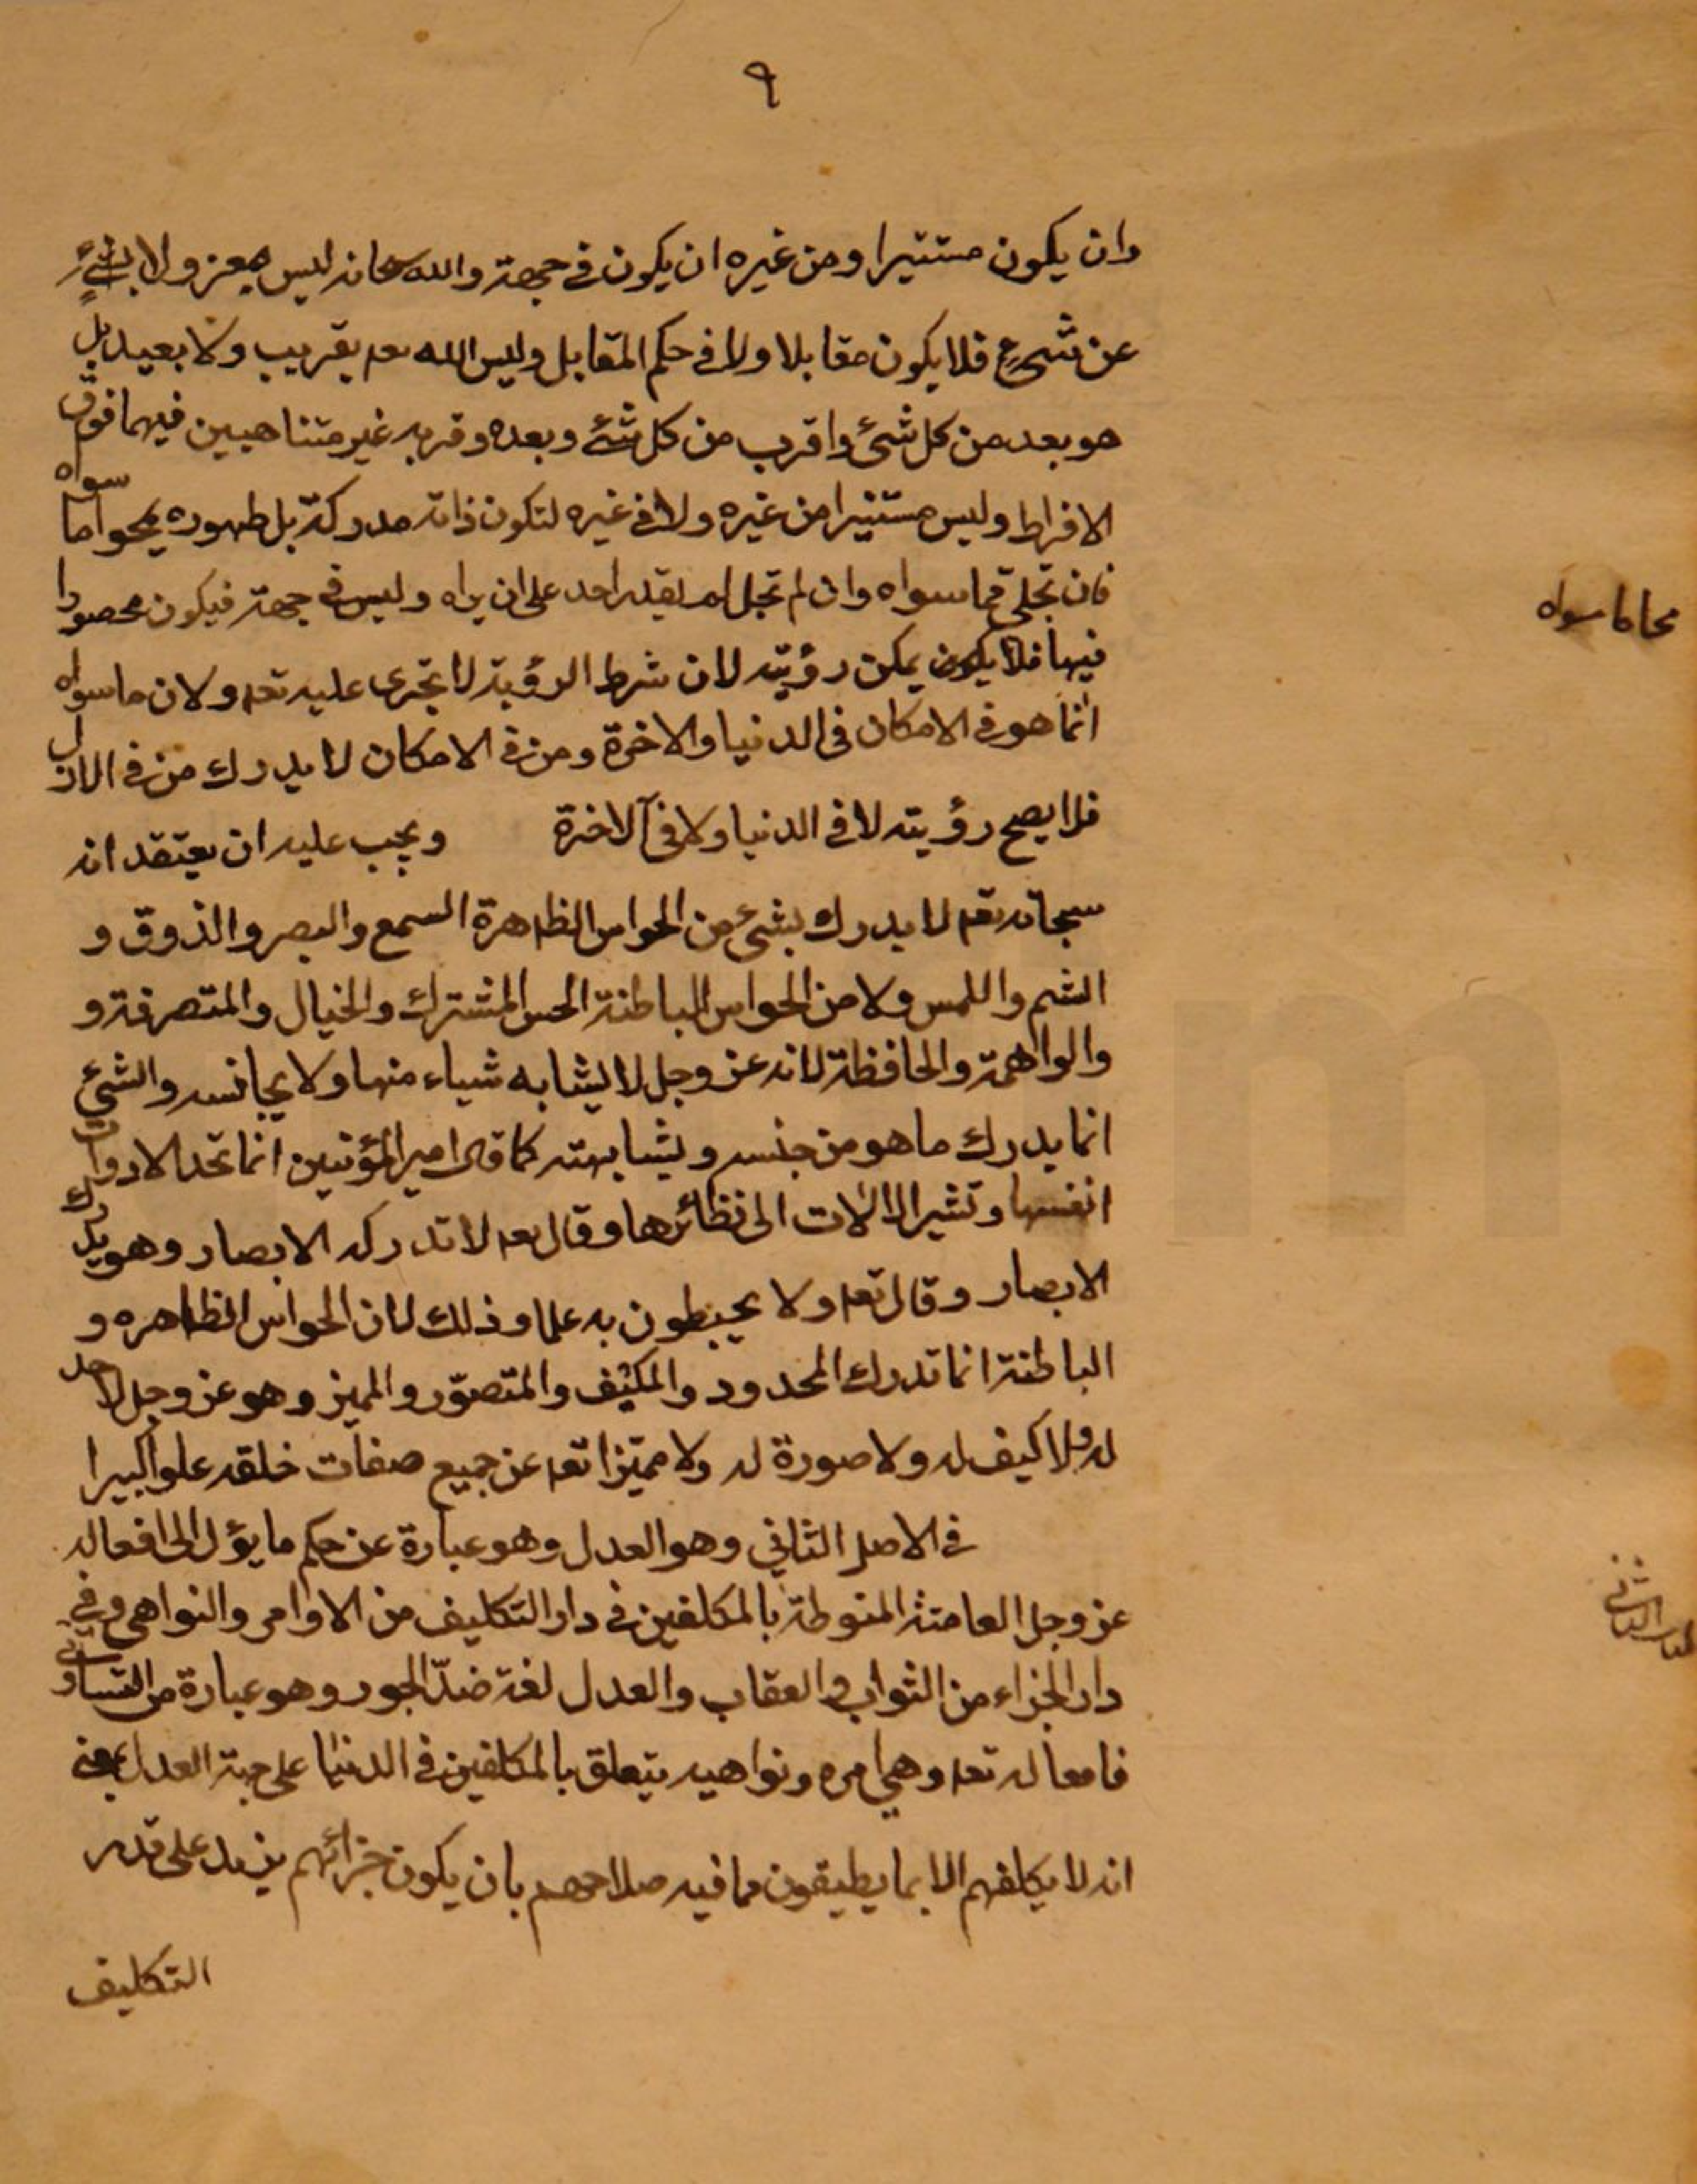 ٩
وان يكون مستنيرا ومن غيره ان يكون في جهة والله سبحانه ليس بمعز ولا بشئ
عن شئ فلا يكون مقابلا ولا في حكم المقابل وليس الله تعه بقريب ولا بعيد بل
هو بعد من كل شئ واقرب من كل شئ وبعده وقربه غير متناهيين فيهما فوق
الافراط وليس مستنيرا من غيره ولا في غيره لتكون ذاته مدركة بل ظهوره يمحو ما سواه
فان تجلى فما سواه وان لم تجل لم يقدر احد على ان يراه وليس في جهة فيكون محصورا
محا ما سواه
فيها فلا يكون يمكن رؤيته لان شرط الرؤية لا تجرى عليه تعه ولان ما سواه
انما هو في الامكان في الدنيا والاخرة ومن في الامكان لا يدرك من في الازل
فلا يصح رؤيته لا في الدنيا ولا في الاخرة ويجب عليه ان يعتقد انه
سبحانه تعه لا يدرك بشئ من الحواس الظاهرة السمع والبصر والذوق و
الشم واللمس ولا من الحواس الباطنة الحس المشترك والخيال والمتصرفة و
والواهمة والحافظة لانه عز وجل لا يشابه شياء منها ولا يجانسه والشئ
انما يدرك ما هو من جنسه ويشابهته كما قال امير المؤمنين انما تحد الادوات
انفسها وتشير الالات الى نظائرها وقال تعه لا تدركه الابصار وهو يدرك
الابصار وقال تعه ولا يحيطون به علما وذلك لان الحواس الظاهره و
الباطنة انما تدرك المحدود والمكيف والمتصور والمميز وهو عز وجل لا حد
له ولا كيف له ولا صورة له ولا مميز تعه عن جميع صفات خلقه علوا كبيرا
في الاصل الثاني وهو العدل وهو عبارة عن حكم ما يؤل الى افعاله
عز وجل العامة المنوطة بالمكلفين في دار التكليف من الاوامر والنواهي وفي
الباب الثاني
دار الجزاء من الثواب والعقاب والعدل لغة ضد الجور وهو عبارة من التساوي
فافعاله تعه وهي امره ونواهيه يتعلق بالمكلفين في الدنيا على جهة العدل يعني
انه لا يكلفهم الا بما يطيقون مما فيه صلاحهم بان يكون جزائهم يزيد على قدر
التكليف